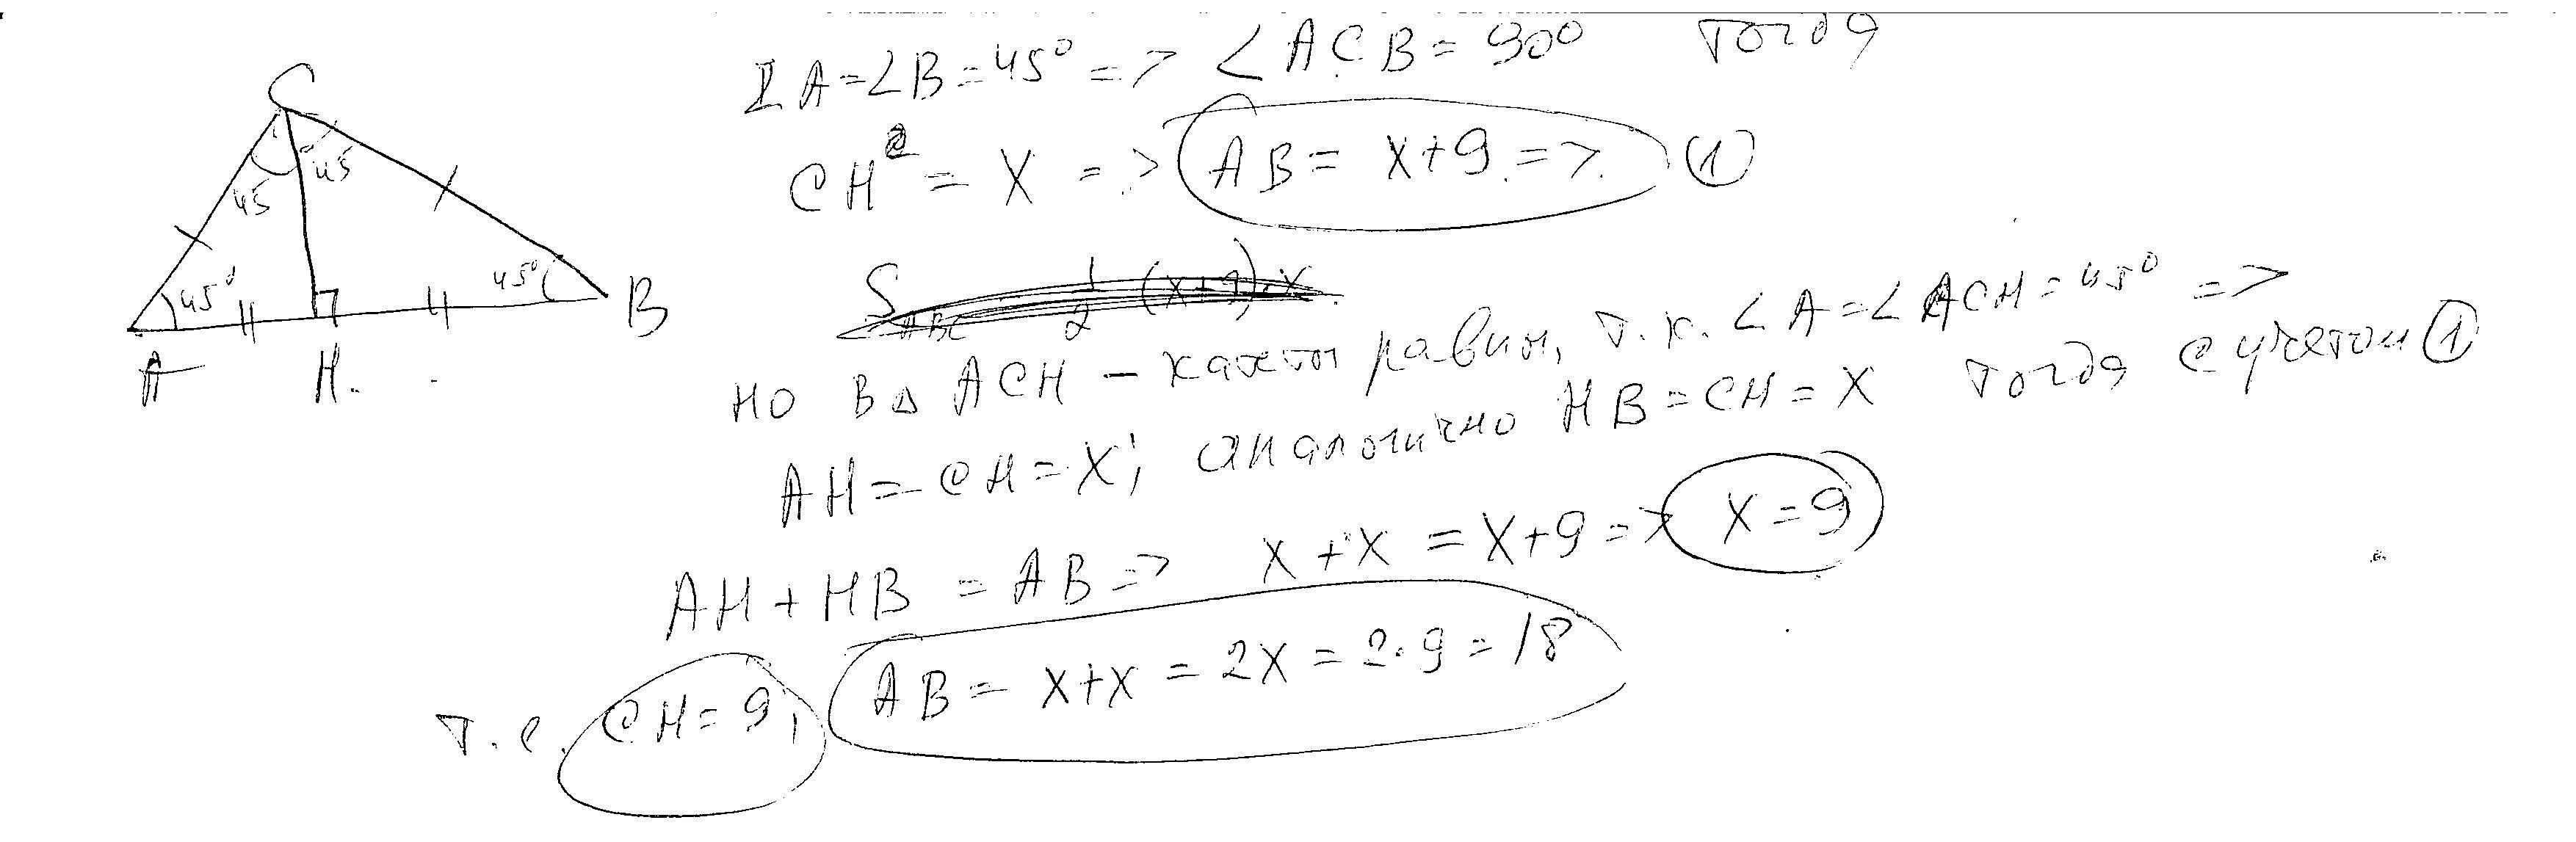 C
45 45
45° 45°
A H. B
∠A=∠B=45° => ∠ACB=90° тогда
CH = X => AB = X+9 => ①
S ABC 1/2 (X+9)·X
но в Δ ACH – катеты равны, т.к. ∠A=∠ACH=45° =>
AH=CH=X; аналогично HB=CH=X тогда с учетом ①
AH+HB = AB => X+X = X+9 => X=9
т.е. CH=9; AB= X+X = 2X = 2·9=18